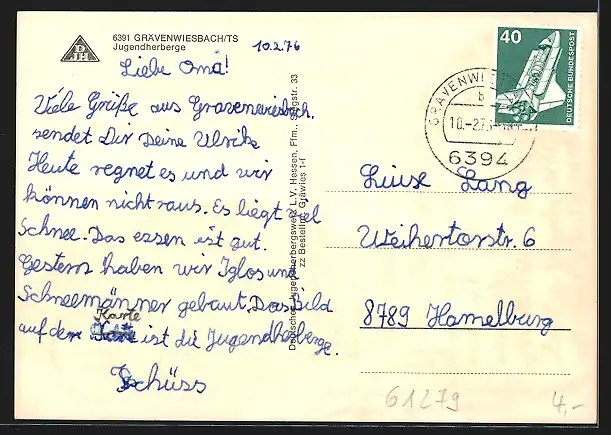 DJH
6391 GRÄVENWIESBACH/TS
Jugendherberge
10.2.76
Liebe Oma!
Viele Grüße aus Gravenwiesbach.
sendet Dir Deine Ulrike
Heute regnet es und wir
können nicht raus. Es liegt viel
Schnee. Das essen ist gut.
Gestern haben wir Iglos und
Schneemänner gebaut. Das Bild
auf der Karte ist die Jugendherberge.
Tschüss
Deutsches Jugendherbergswerk L.V. Hessen, Ffm., Stegstr. 33
zz Bestellnr. Gräwies 1-f
40
DEUTSCHE BUNDESPOST
GRÄVENWIE
b
10.-2.7
6394
Luise Lang
Weihertorstr. 6
8789 Hamelburg
61279
4,-